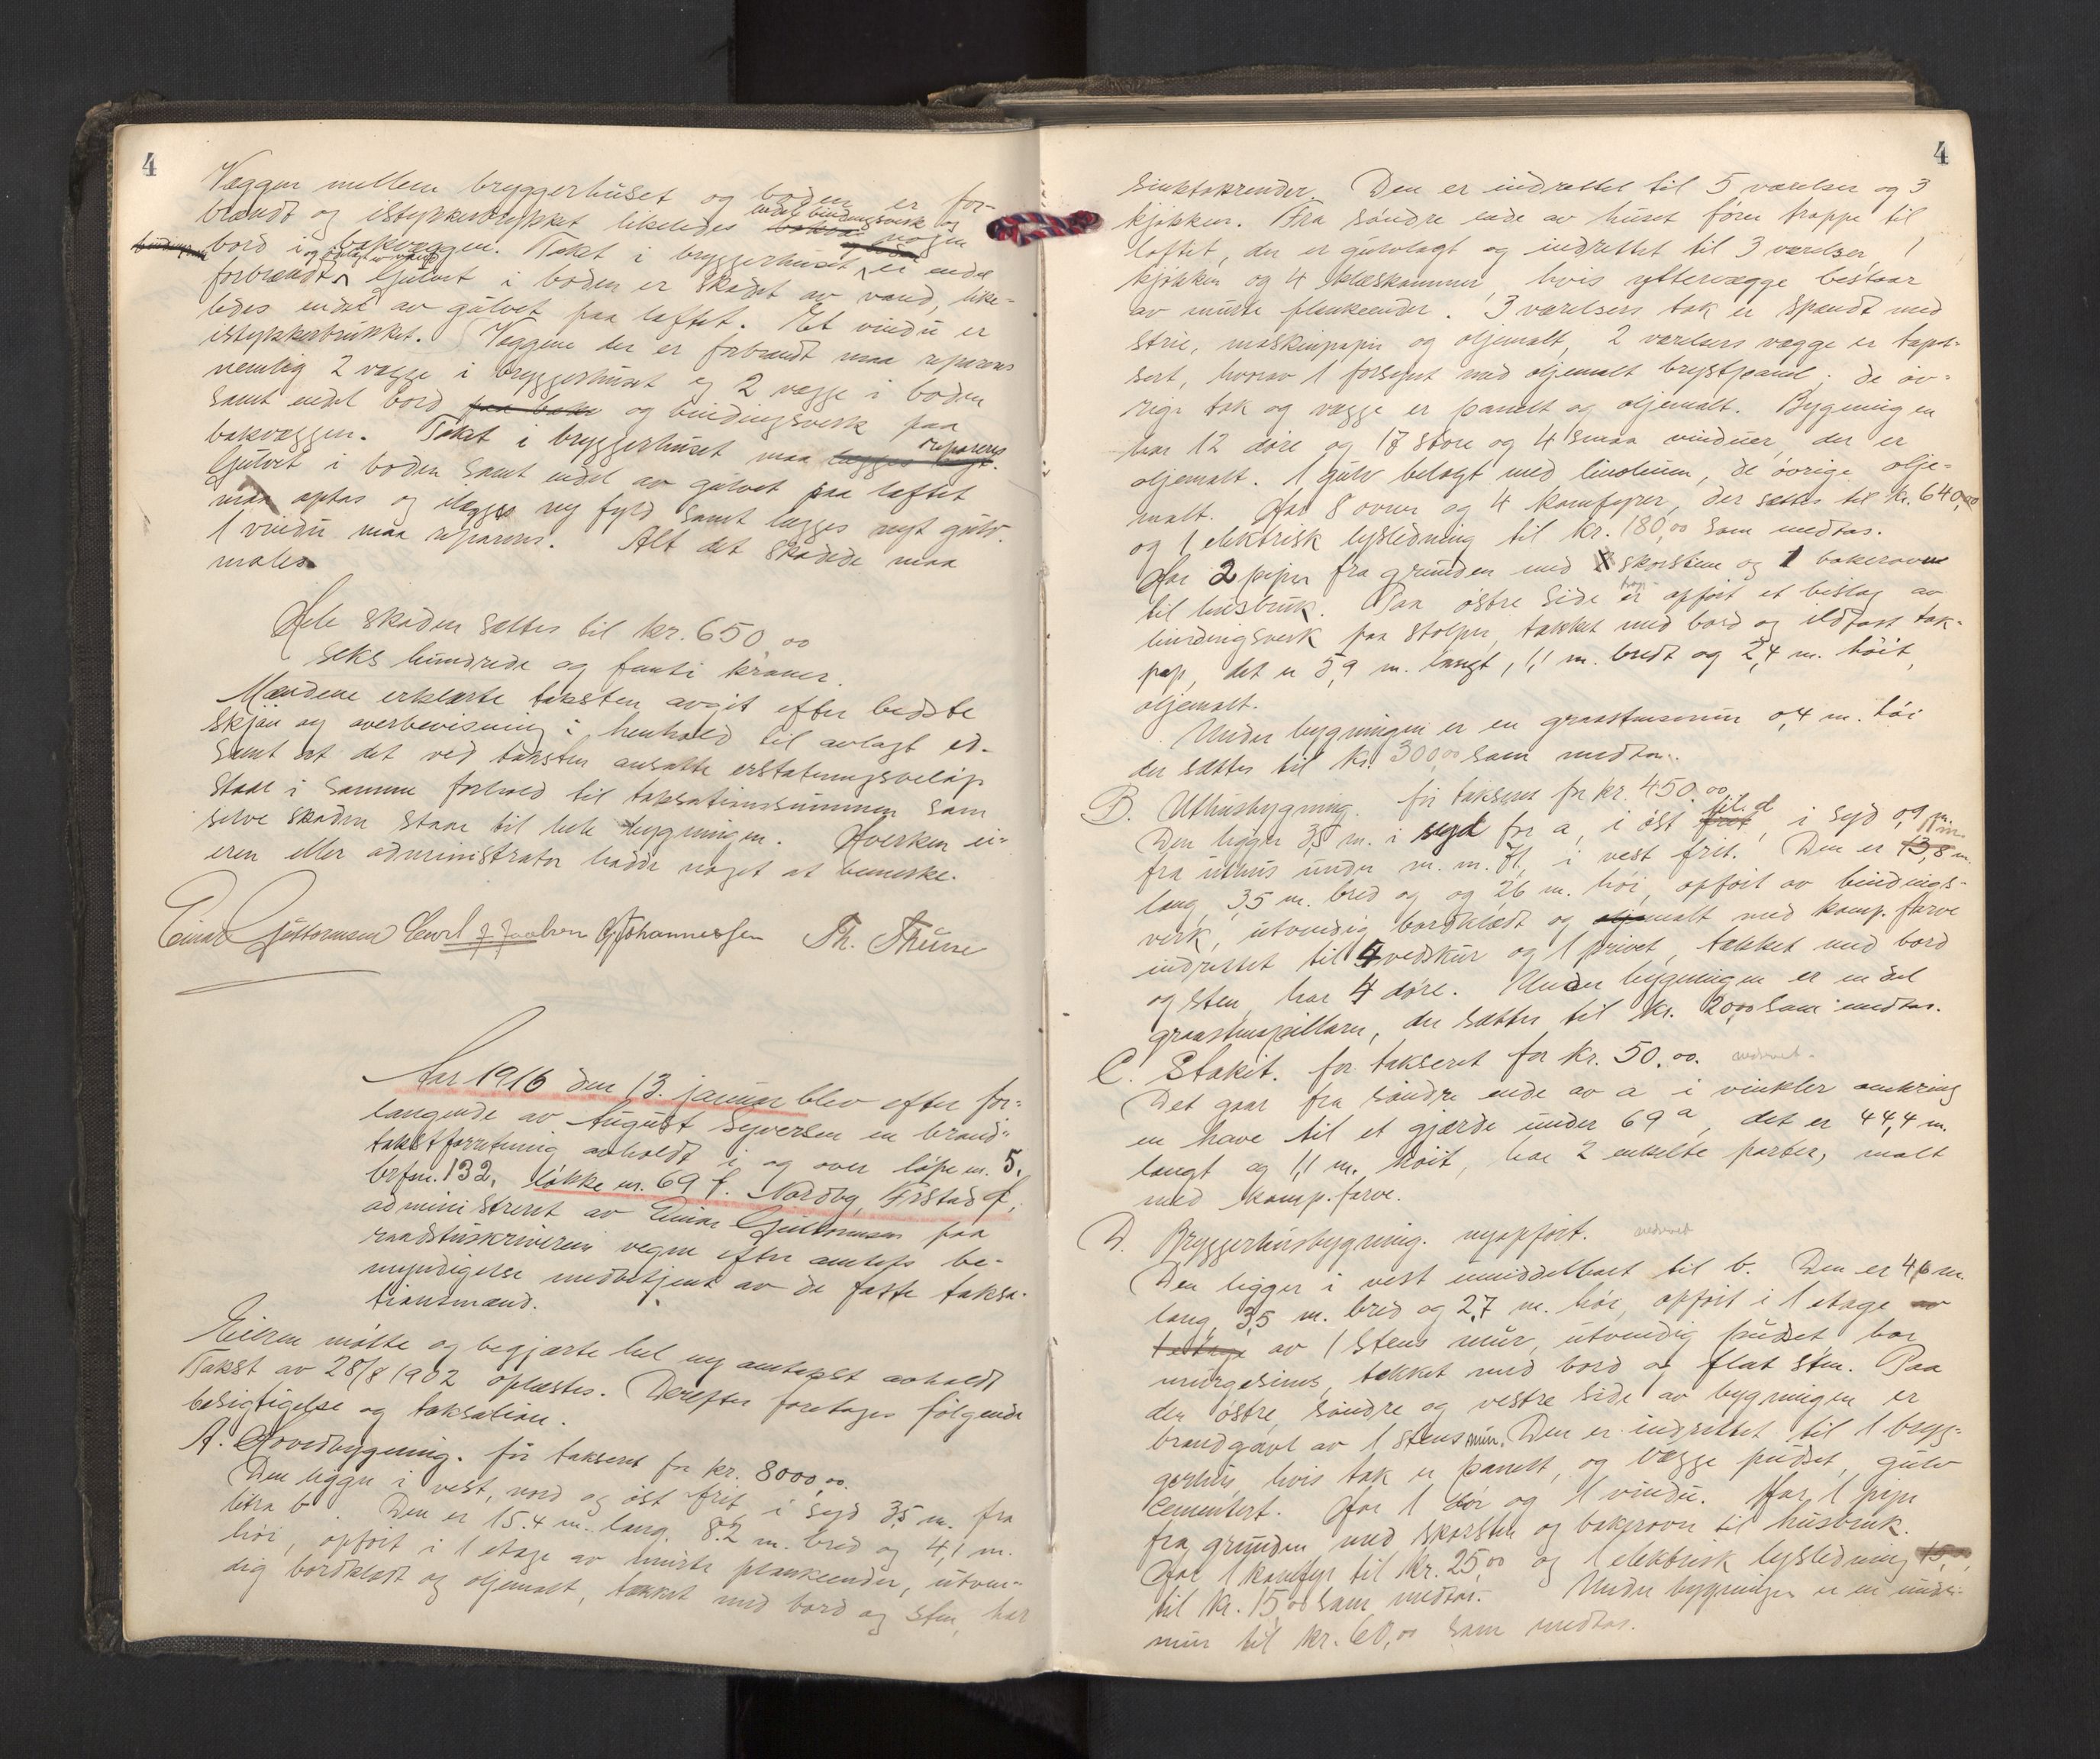 4
Væggen mellem bryggerhuset og boden er for-
brændt og istykkerbrukket likeledes endel bindingsverk og
bord i bakvæggen. Taket i bryggerhuset er endel
forbrændt. Gulvet i boden er skadet av vand, like-
ledes endel av gulvet paa loftet. Et vindu er
istykkerbrukket. Væggene der er forbrændt maa repareres
nemlig 2 vægge i bryggerhuset og 2 vægge i boden
samt endel bord paa bak og bindingsverk paa
bakvæggen. Taket i bryggerhuset maa repareres.
Gulvet i boden samt endel av gulvet paa loftet
maa optas og ilægges ny fyld samt lægges nyt gulv.
1 vindu maa repareres. Alt det skadede maa
males.
Hele skaden sættes til kr. 650,00
seks hundrede og femti kroner.
Mændene erklærte taksten avgit efter bedste
skjøn og overbevisning i henhold til avlagt ed-
samt at det ved taksten ansatte erstatningsbeløp
staar i samme forhold til taksationssummen som
selve skaden staar til hele bygningen. Hverken ei-
eren eller administrator hadde noget at bemerke.
Einar Guttormsen Emil J. Jacobsen G Johannessen Th. Thune
Aar 1916 den 13. januar blev efter for-
langende av August Syversen en brand-
takstforretning avholdt i og over løpe nr. 5.
brfnr. 132, løkke nr. 69 f. Nordby, Fr.stad f,
administreret av Einar Guttormsen paa
raadstuskriverens vegne efter amtets be-
myndigelse medbetjent av de faste taksa-
tionsmænd.
Eieren møtte og begjærte hel ny omtakst avholdt
Takst av 28/8 1902 oplæstes. Derefter foretages følgende
besigtigelse og taksation.
A. Hovedbygning. før takseret for kr. 8000,00.
Den ligger i vest, nord og øst frit, i syd 3,5 m. fra
litra b. Den er 15.4 m. lang, 8.2 m. bred og 4,1 m.
høi, opført i 1 etage av murte plankeender, utven-
dig bordklædt og oljemalt, tækket med bord og sten, har
4
sinktakrender. Den er indrettet til 5 værelser og 3
kjøkken. Fra søndre ende av huset fører trappe til
loftet, der er gulvlagt og indrettet til 3 værelser, 1
kjøkken og 4 klæskammer, hvis yttervægge bestaar
av murte plankeender. 3 værelsers tak er spændt med
strie, maskinpapir og oljemalt, 2 værelsers vægge er tapet-
sert, hvorav 1 forsynt med oljemalt brystpanel; de øv-
rige tak og vægge er panelt og oljemalt. Bygningen
har 12 døre og 17 store og 4 smaa vinduer, der er
oljemalt. 1 gulv belagt med linoleum, de øvrige olje-
malt. Har 8 ovner og 4 komfyrer, der sættes til kr. 640,00
og 1 elektrisk lysledning til kr. 180,00 som medtas.
Har 2 piper fra grunden med skorsten og 1 bakerovn
til husbruk. Paa østre side er opført et bislag av
bindingsverk paa stolper, tækket med bord og ildfast tak-
pap, det er 5,9 m. langt, 1,1 m. bredt og 2,4 m. høit,
oljemalt.
Under bygningen er en graastensmur 0,4 m. høi
der sættes til kr. 300,00 som medtas.
B. Uthusbygning. før takseret for kr. 450.00
Den ligger 3,5 m. i syd for a, i øst til d, i syd 0,9 m.
fra uthus under m. m. 71, i vest frit. Den er 13,8 m.
lang, 3,5 m. bred og og 2,6 m. høi, opført av bindings-
verk, utvendig bordklædt og malt med komp. farve
indrettet til 4 vedskur og 1 privet, tækket med bord
og sten, har 4 døre. Under bygningen er en del
graastenspillarer, der sættes til kr. 20,00 som medtas.
C. Stakit. før takseret for kr. 50.00. nedrevet.
Det gaar fra søndre ende av a i vinkler omkring
en have til et gjærde under 69 a, det er 44,4 m.
langt og 1,1 m. høit, har 2 enkelte porter, malt
med komp. farve.
D. Bryggerhusbygning. nyopført. nedrevet
Den ligger i vest umiddelbart til b. Den er 4,6 m.
lang, 3,5 m. bred og 2,7 m. høi, opført i 1 etage
1 etage av 1 stens mur, utvendig pudset, har
murgesims, tækket med bord og flat sten. Paa
den østre, søndre og vestre side av bygningen er
brandgavl av 1 stens mur. Den er indrettet til 1 bryg-
gerhus, hvis tak er panelt, og vægge pudset, gulv
cementert. Har 1 dør og 1 vindu. Har 1 pipe
fra grunden med skorsten og bakerovn til husbruk.
Har 1 komfyr til kr. 25,00 og 1 elektrisk lysledning
til kr. 15,00 som medtas. Under bygningen er en under-
mur til kr. 60,00 som medtas.